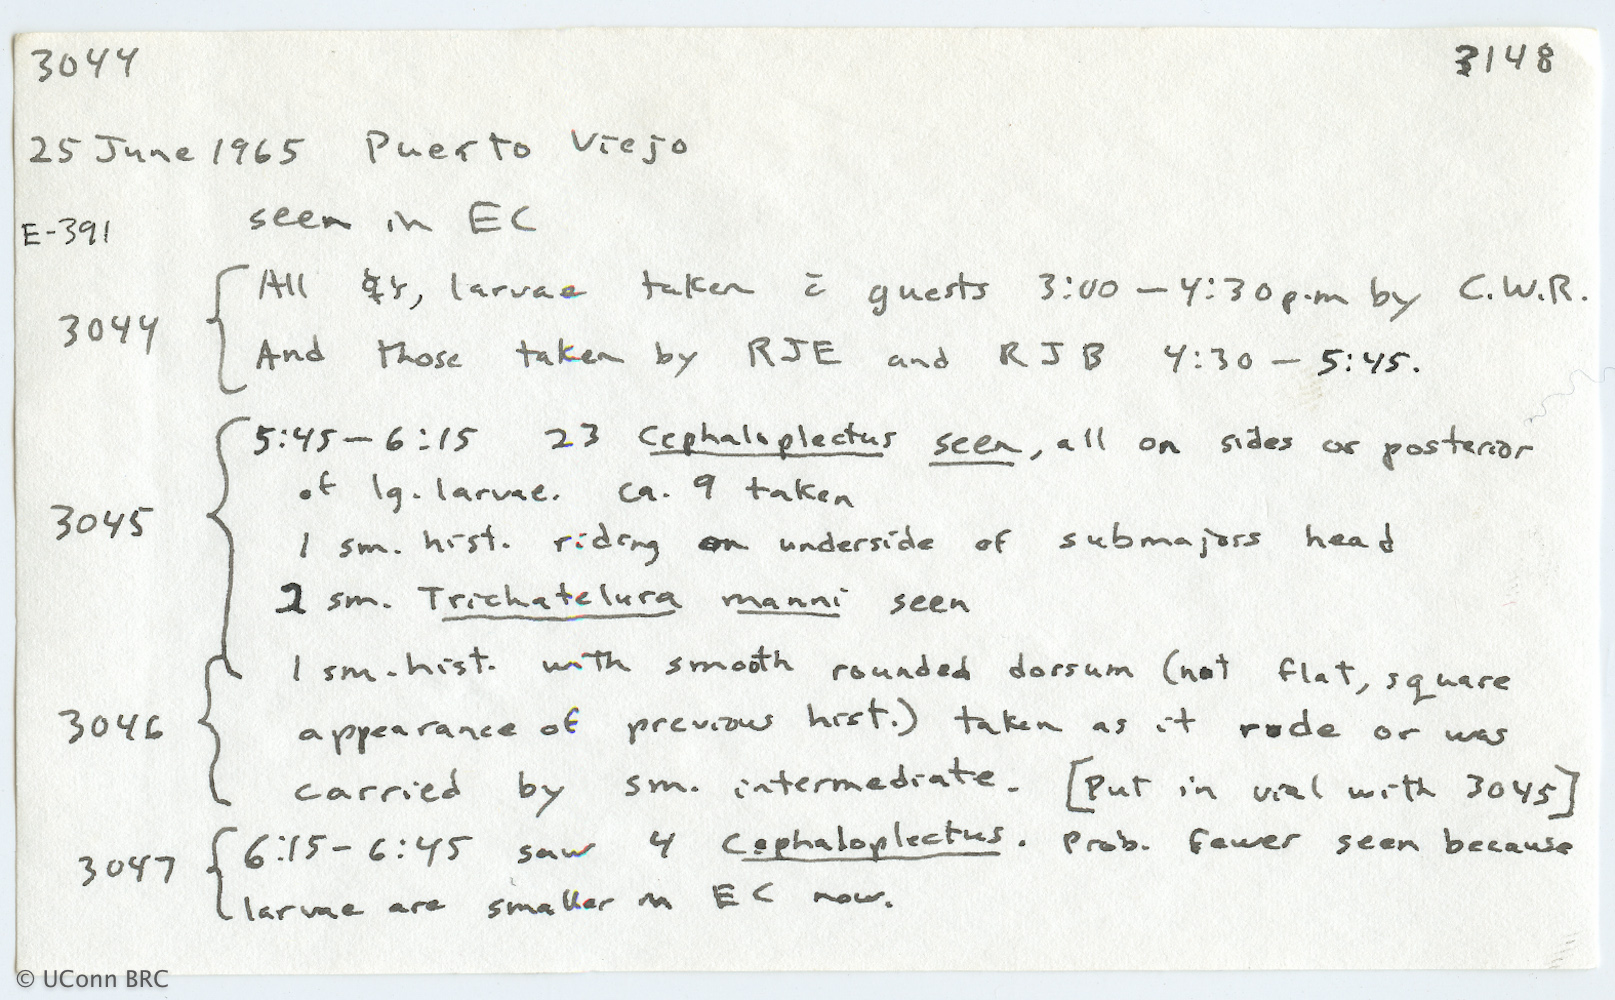 3044 3148
25 June 1965 Puerto Viejo
E-391 seen in EC
3044 All ☿s, larvae taken c̄ guests 3:00 – 4:30 p.m by C.W.R.
And those taken by RJE and RJB 4:30 – 5:45.
5:45 – 6:15 23 Cephaloplectus seen, all on sides or posterior
of lg. larvae. ca. 9 taken
3045 1 sm. hist. riding on underside of submajors head
2 sm. Trichatelura manni seen
1 sm. hist. with smooth rounded dorsum (not flat, square
3046 appearance of previous hist.) taken as it rode or was
carried by sm. intermediate. [Put in vial with 3045]
3047 6:15 – 6:45 saw 4 Cephaloplectus. Prob. fewer seen because
larvae are smaller in EC now.
© UConn BRC